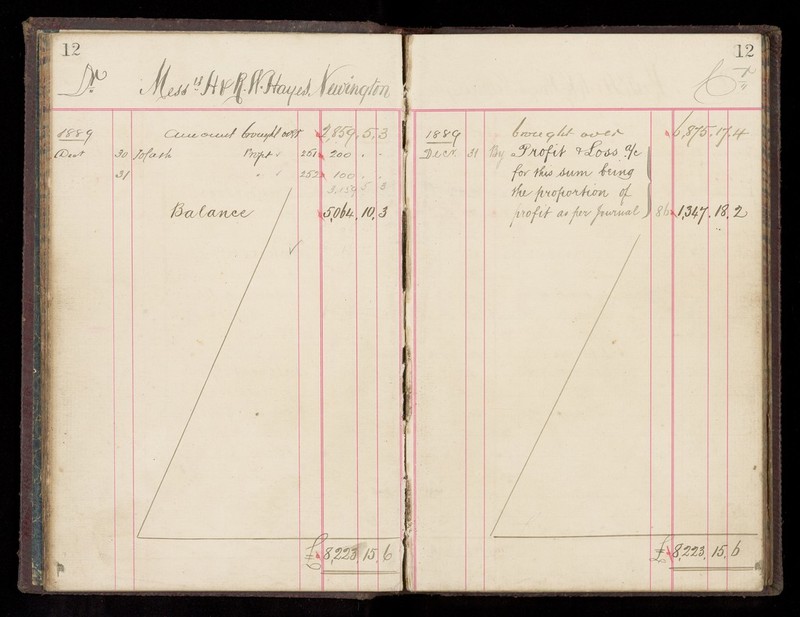 12
Dr Messrs H & R. W. Hayes. Newington
1889 amount brought over 2,859. 5. 3
Dect 30 To Cash 251 200 . .
31 " 252 100 . .
3,159 5 3
Balance 5,064. 10. 3
£ 8,223. 15. 6
12
Cr
1889 brought over 6,875. 17. 4
Decr. 31 By Profit & Loss a/c
for this sum being
the proportion of
profit as per Journal 86 1,347. 18. 2
£ 8,223. 15. 6